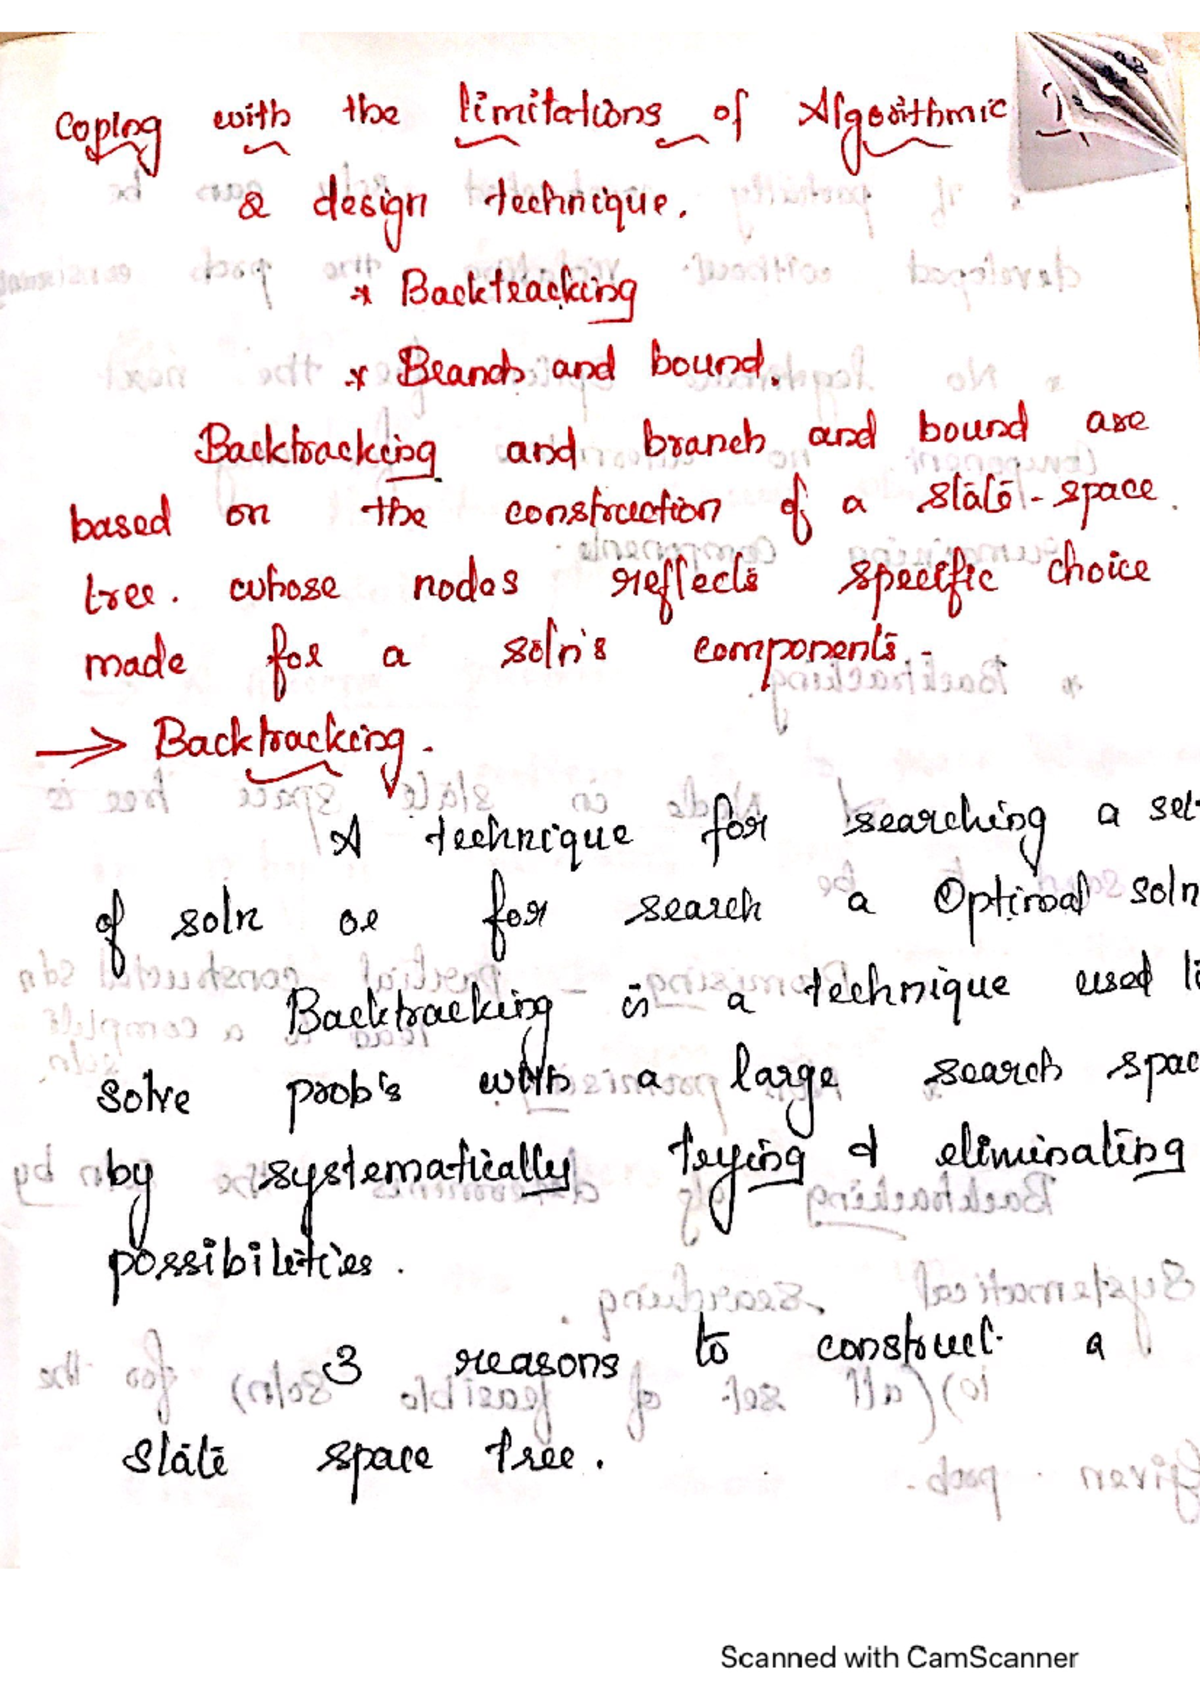 Coping with the limitations of Algorithmic
& design technique.
* Backtracking
* Branch and bound.
Backtracking and branch and bound are
based on the construction of a state-space
tree. whose nodes reflects specific choice
made for a soln's components.
→ Backtracking.
A technique for searching a set
of soln or for search a Optimal soln
Backtracking is a technique used
solve prob's with a large search spac
by systematically trying & eliminating
possibilities.
3 reasons to construct a
state space tree.
Scanned with CamScanner